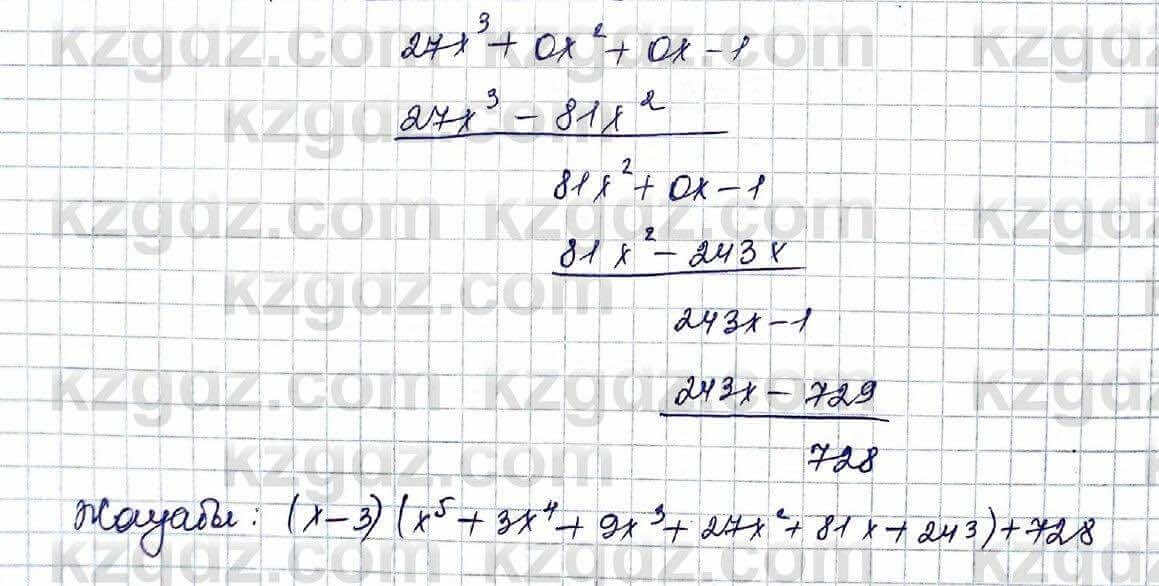 27x³ + 0x² + 0x - 1
27x³ - 81x²
81x² + 0x - 1
81x² - 243x
243x - 1
243x - 729
728
Жауабы: (x-3)(x⁵ + 3x⁴ + 9x³ + 27x² + 81x + 243) + 728
kzgdz.com kzgdz.com kzgdz.com
kzgdz.com
kzgdz.com kzgdz.com kzgdz.com
kzgdz.com
kzgdz.com kzgdz.com kzgdz.com
kzgdz.com
kzgdz.com kzgdz.com kzgdz.com